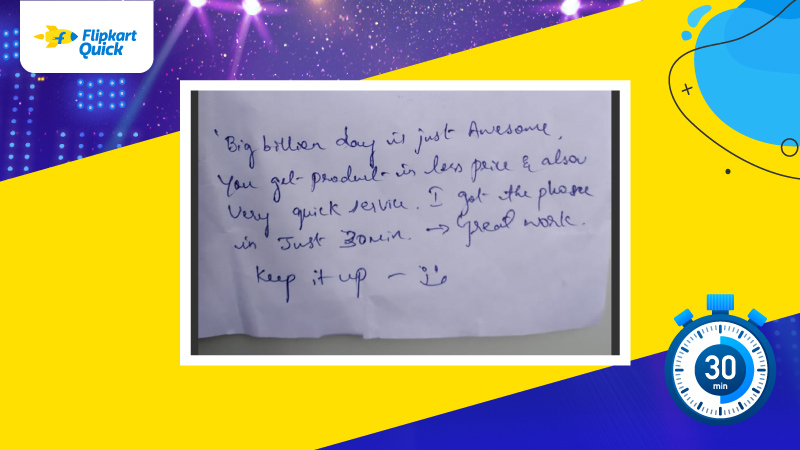 Flipkart
Quick
'Big billion day is just Awesome.
You get product in less price & also
Very quick service. I got the phone
in Just 30min. → Great work.
Keep it up –
30
min